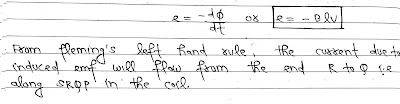 e = -dϕ/dt or e = -Blv
From fleming's left hand rule, the current due to
induced emf will flow from the end R to Q i.e
along SRQP in the coil.